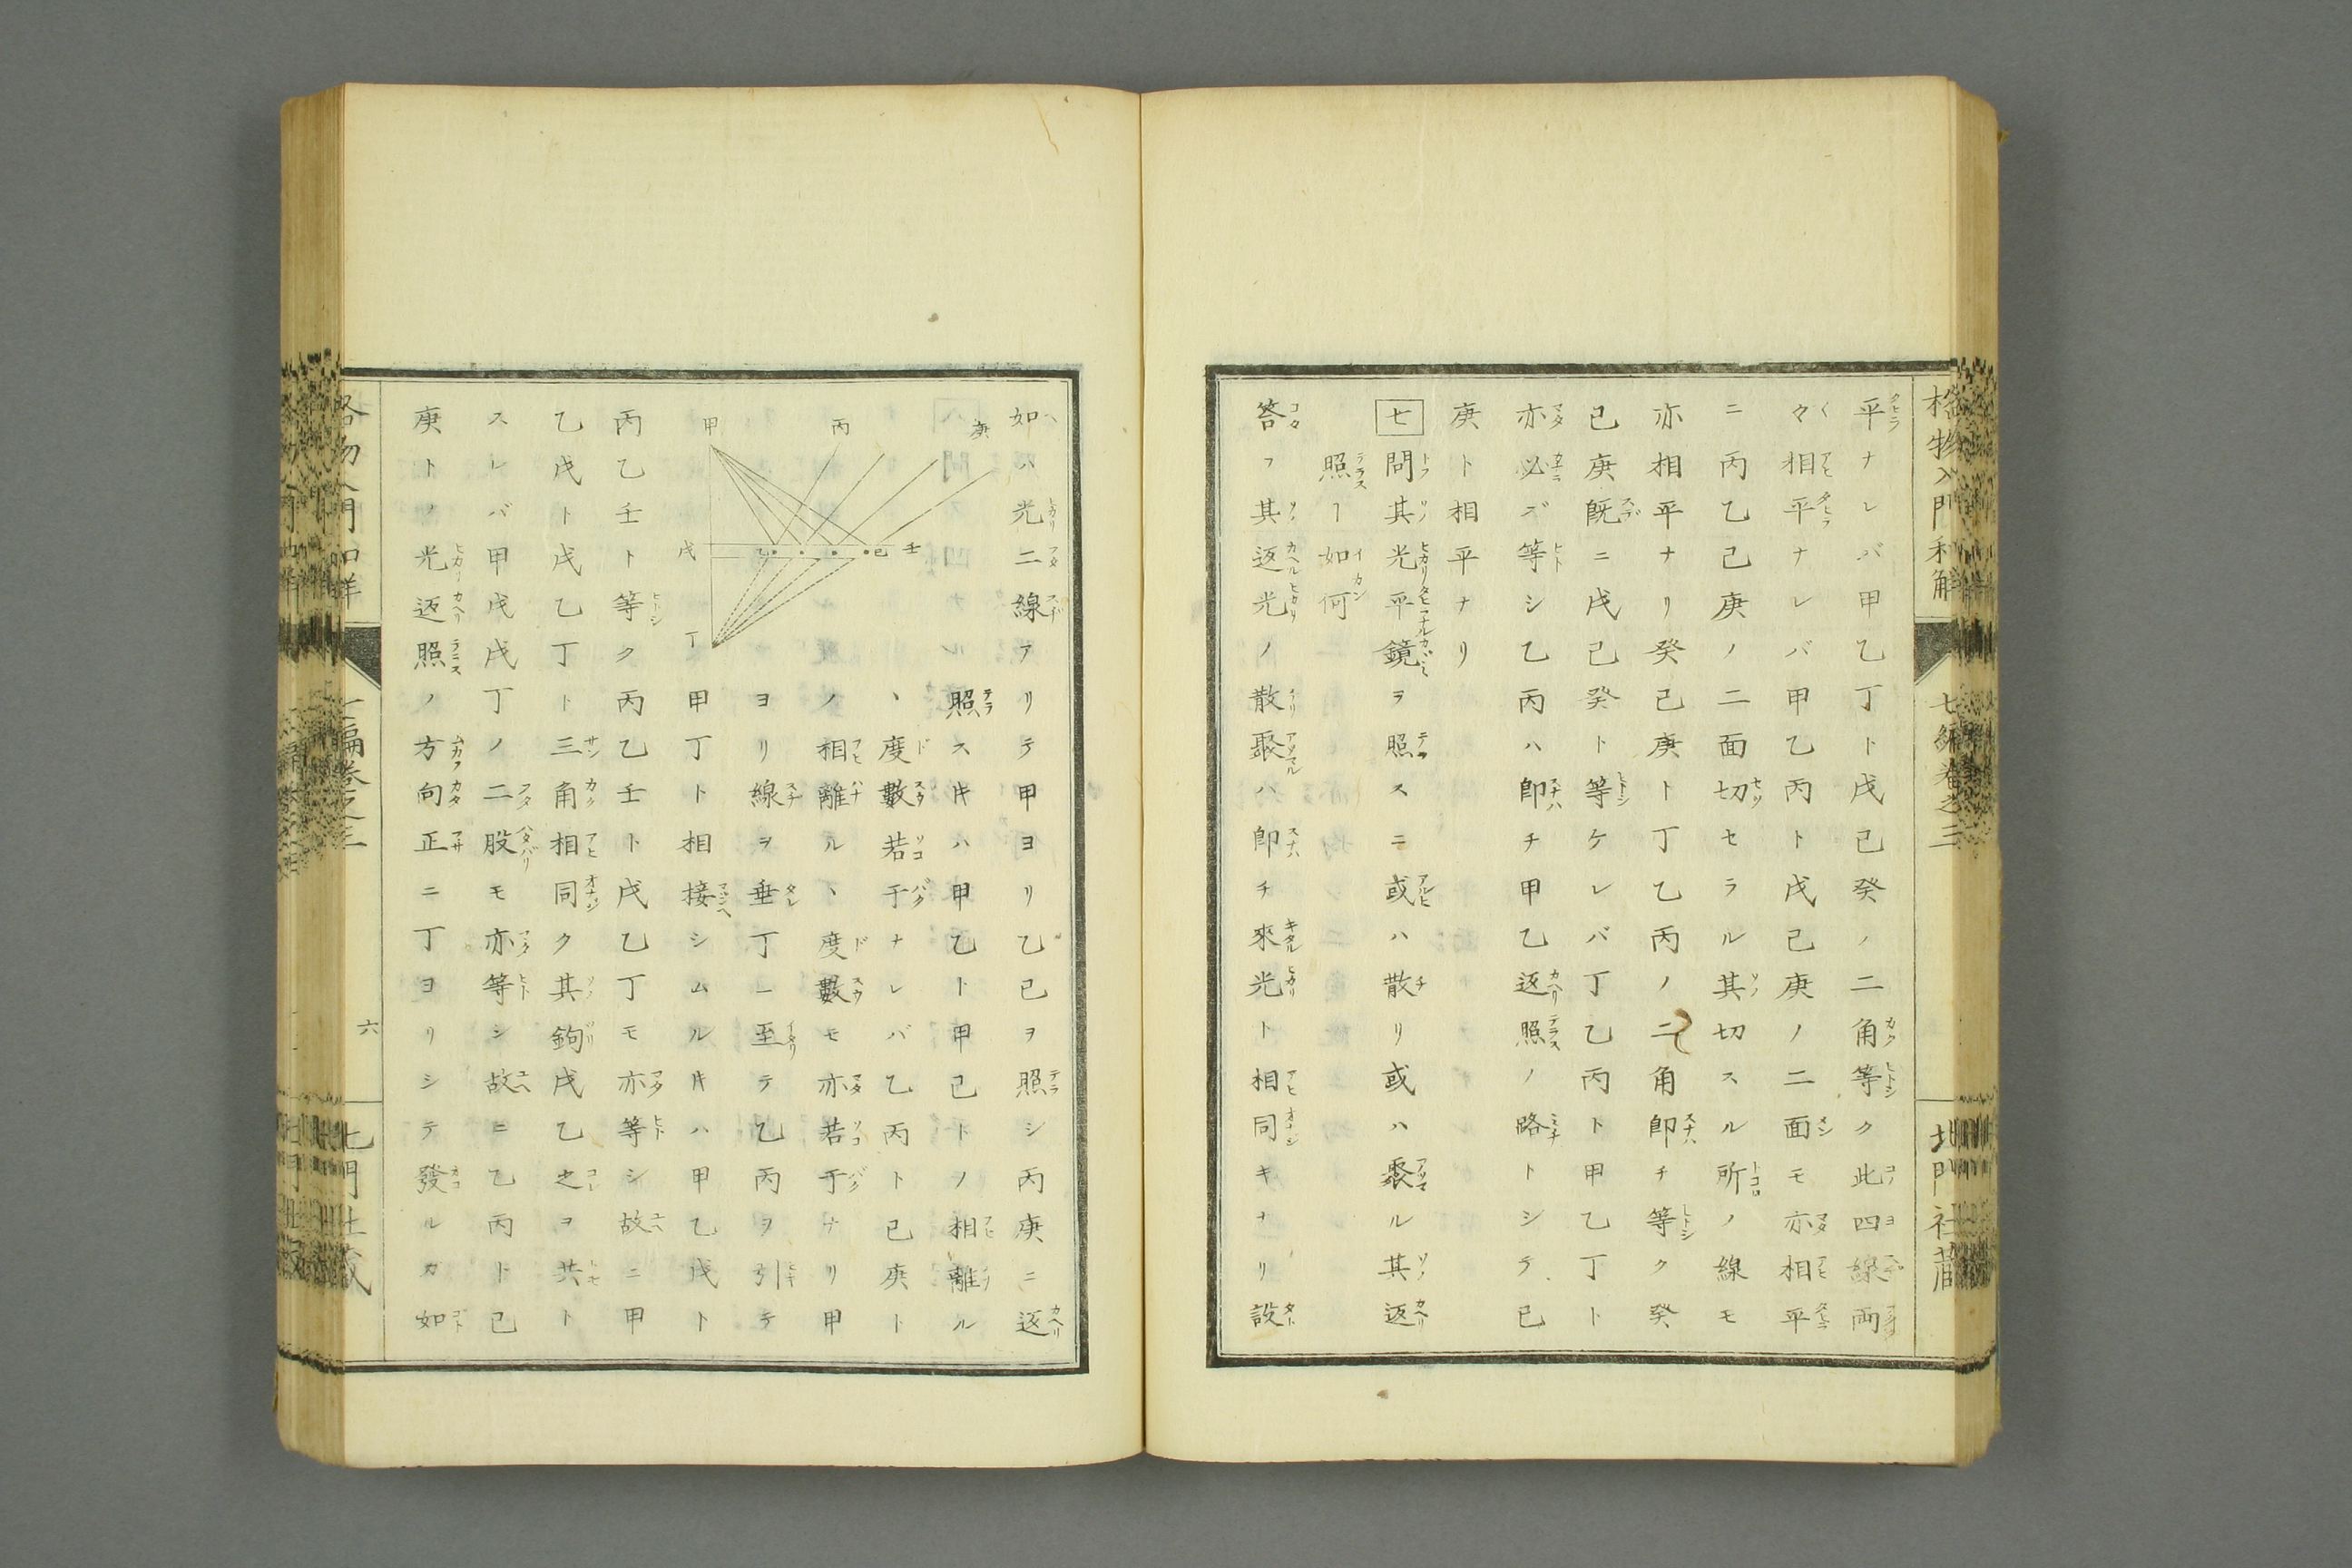 格物入門和解 七編卷之三 北門社藏
平ナレバ甲乙丁ト戊己癸ノ二角等ク此四線両
々相平ナレバ甲乙丙ト戊己庚ノ二面モ亦相平
ニ丙乙己庚ノ二面切セラル其切スル所ノ線モ
亦相平ナリ癸己庚ト丁乙丙ノ二角即チ等ク癸
己庚既ニ戊己癸ト等ケレバ丁乙丙ト甲乙丁ト
亦必ズ等シ乙丙ハ即チ甲乙返照ノ路トシテ已
庚ト相平ナリ
七 問其光平鏡ヲ照スニ或ハ散リ或ハ聚ル其返
照ヿ如何
答フ其返光ノ散聚ハ即チ來光ト相同キナリ設
如ハ光二線アリテ甲ヨリ乙己ヲ照シ丙庚ニ返
照スキハ甲乙ト甲己トノ相離ル
ヽ度數若干ナレバ乙丙ト己庚ト
ノ相離ルヽ度數モ亦若干ナリ甲
ヨリ線ヲ垂丁ニ至テ乙丙ヲ引テ
甲丁ト相接シムルキハ甲乙戊ト
丙乙壬ト等ク丙乙壬ト戊乙丁モ亦等シ故ニ甲
乙戊ト戊乙丁ト三角相同ク其鉤戊乙之ヲ共ト
スレバ甲戊戊丁ノ二股モ亦等シ故ニ乙丙ト己
庚トノ光返照ノ方向正ニ丁ヨリシテ發ルカ如
庚
丙
甲
壬
己
乙
戊
丁
六